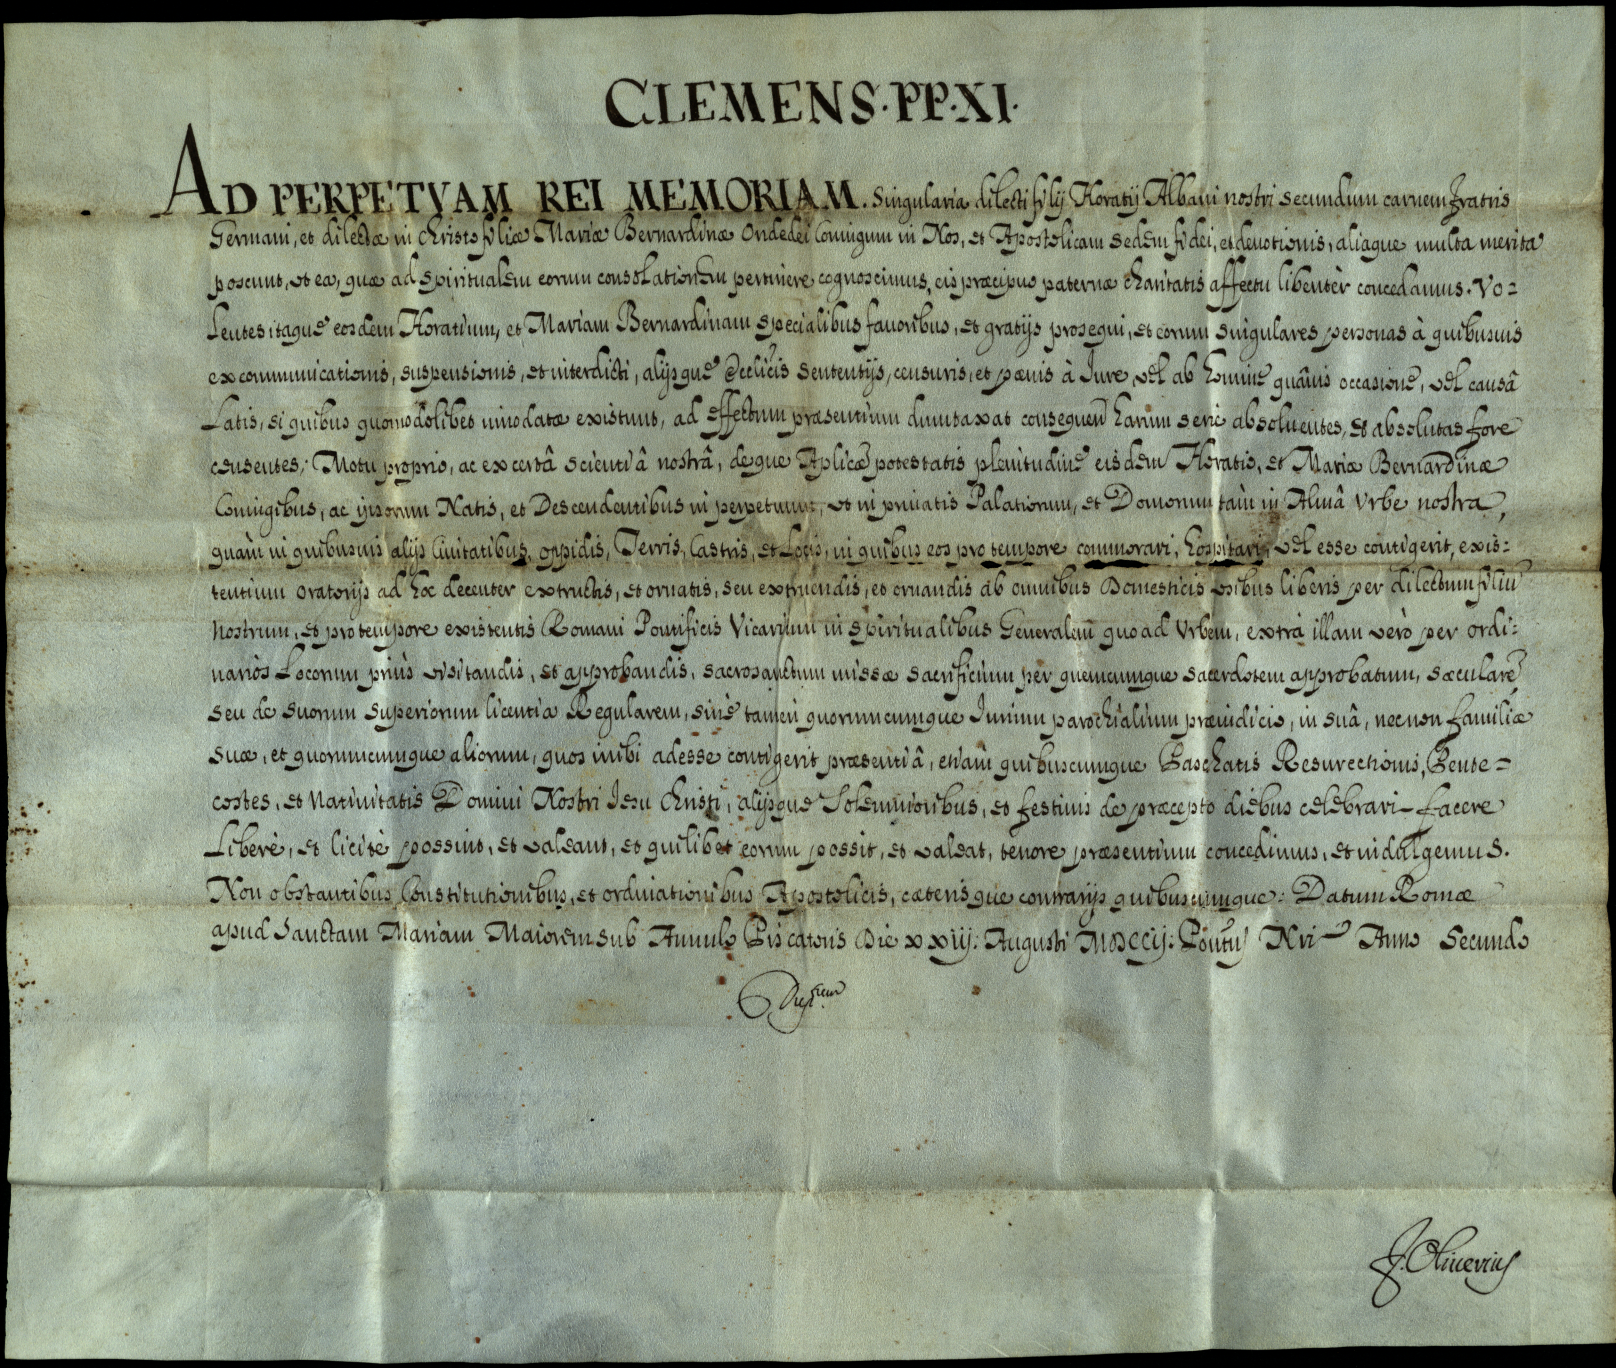 CLEMENS·PP·XI·
AD PERPETVAM REI MEMORIAM. Singularia dilecti filij Horatij Albani nostri secundum carnem fratris
Germani, et dilectæ in Christo filiæ Mariæ Bernardinæ Ondedei Coniugum in Nos, et Apostolicam sedem fidei, et deuotionis, aliaque multa merita
poscunt, vt ea, quæ ad spiritualem eorum consolationem pertinere cognoscimus, eis præcipuo paternæ charitatis affectu libentèr concedamus. Vo=
lentes itaque eosdem Horatium, et Mariam Bernardinam specialibus fauoribus, et gratijs prosequi, et eorum singulares personas à quibusuis
excommunicationis, suspensionis, et interdicti, alijsque Ecclicis sententijs, censuris, et pœnis à Iure, vel ab homine quâuis occasione, vel causâ
Latis, si quibus quomodolibet innodatæ existunt, ad effectum præsentium dumtaxat consequen harum serie absoluentes, et absolutas fore
censentes, Motu proprio, ac ex certâ scientiâ nostrâ, deque Aplicæ potestatis plenitudine eisdem Horatio, et Mariæ Bernardinæ
Coniugibus, ac ipsorum Natis, et Descendentibus in perpetuum, vt in priuatis Palatiorum, et Domorum tam in Almâ Vrbe nostra,
quàm in quibusuis alijs Ciuitatibus, oppidis, Terris, Castris, et Locis, in quibus eos pro tempore commorari, hospitari, vel esse contigerit, exis=
tentium oratorijs ad hoc decenter extructis, et ornatis, seu extruendis, et ornandis ab omnibus Domesticis vsibus liberis per dilectum filiū
nostrum, et pro tempore existentis Romani Pontificis Vicarium in spiritualibus Generalem quoad Vrbem, extra illam verò per ordi=
narios Locorum priùs visitandis, et approbandis, sacrosanctum missæ sacrificium per quemcumque sacerdotem approbatum, sæcularē
seu de suorum superiorum licentia Regularem, sine tamen quorumcumque Iurium parochialium præiudicio, in suâ, necnon familiæ
suæ, et quorumcumque aliorum, quos inibi adesse contigerit præsentiâ, etiam quibuscumque Paschatis Resurectionis, Pente=
costes, et Natiuitatis Domini Nostri Iesu Christi, alijsque Solemnioribus, et festiuis de præcepto diebus celebrari facere
Liberè, et licitè possint, et valeant, et quilibet eorum possit, et valeat, tenore præsentium concedimus, et indulgemus.
Non obstantibus Constitutionibus, et ordinationibus Apostolicis, cæterisque contrarijs quibuscumque: Datum Romæ
apud Sanctam Mariam Maiorem sub Annulo Piscatoris Die xxiij: Augusti MDCCij: Pontus Nri Anno Secundo
F. Oliuerius